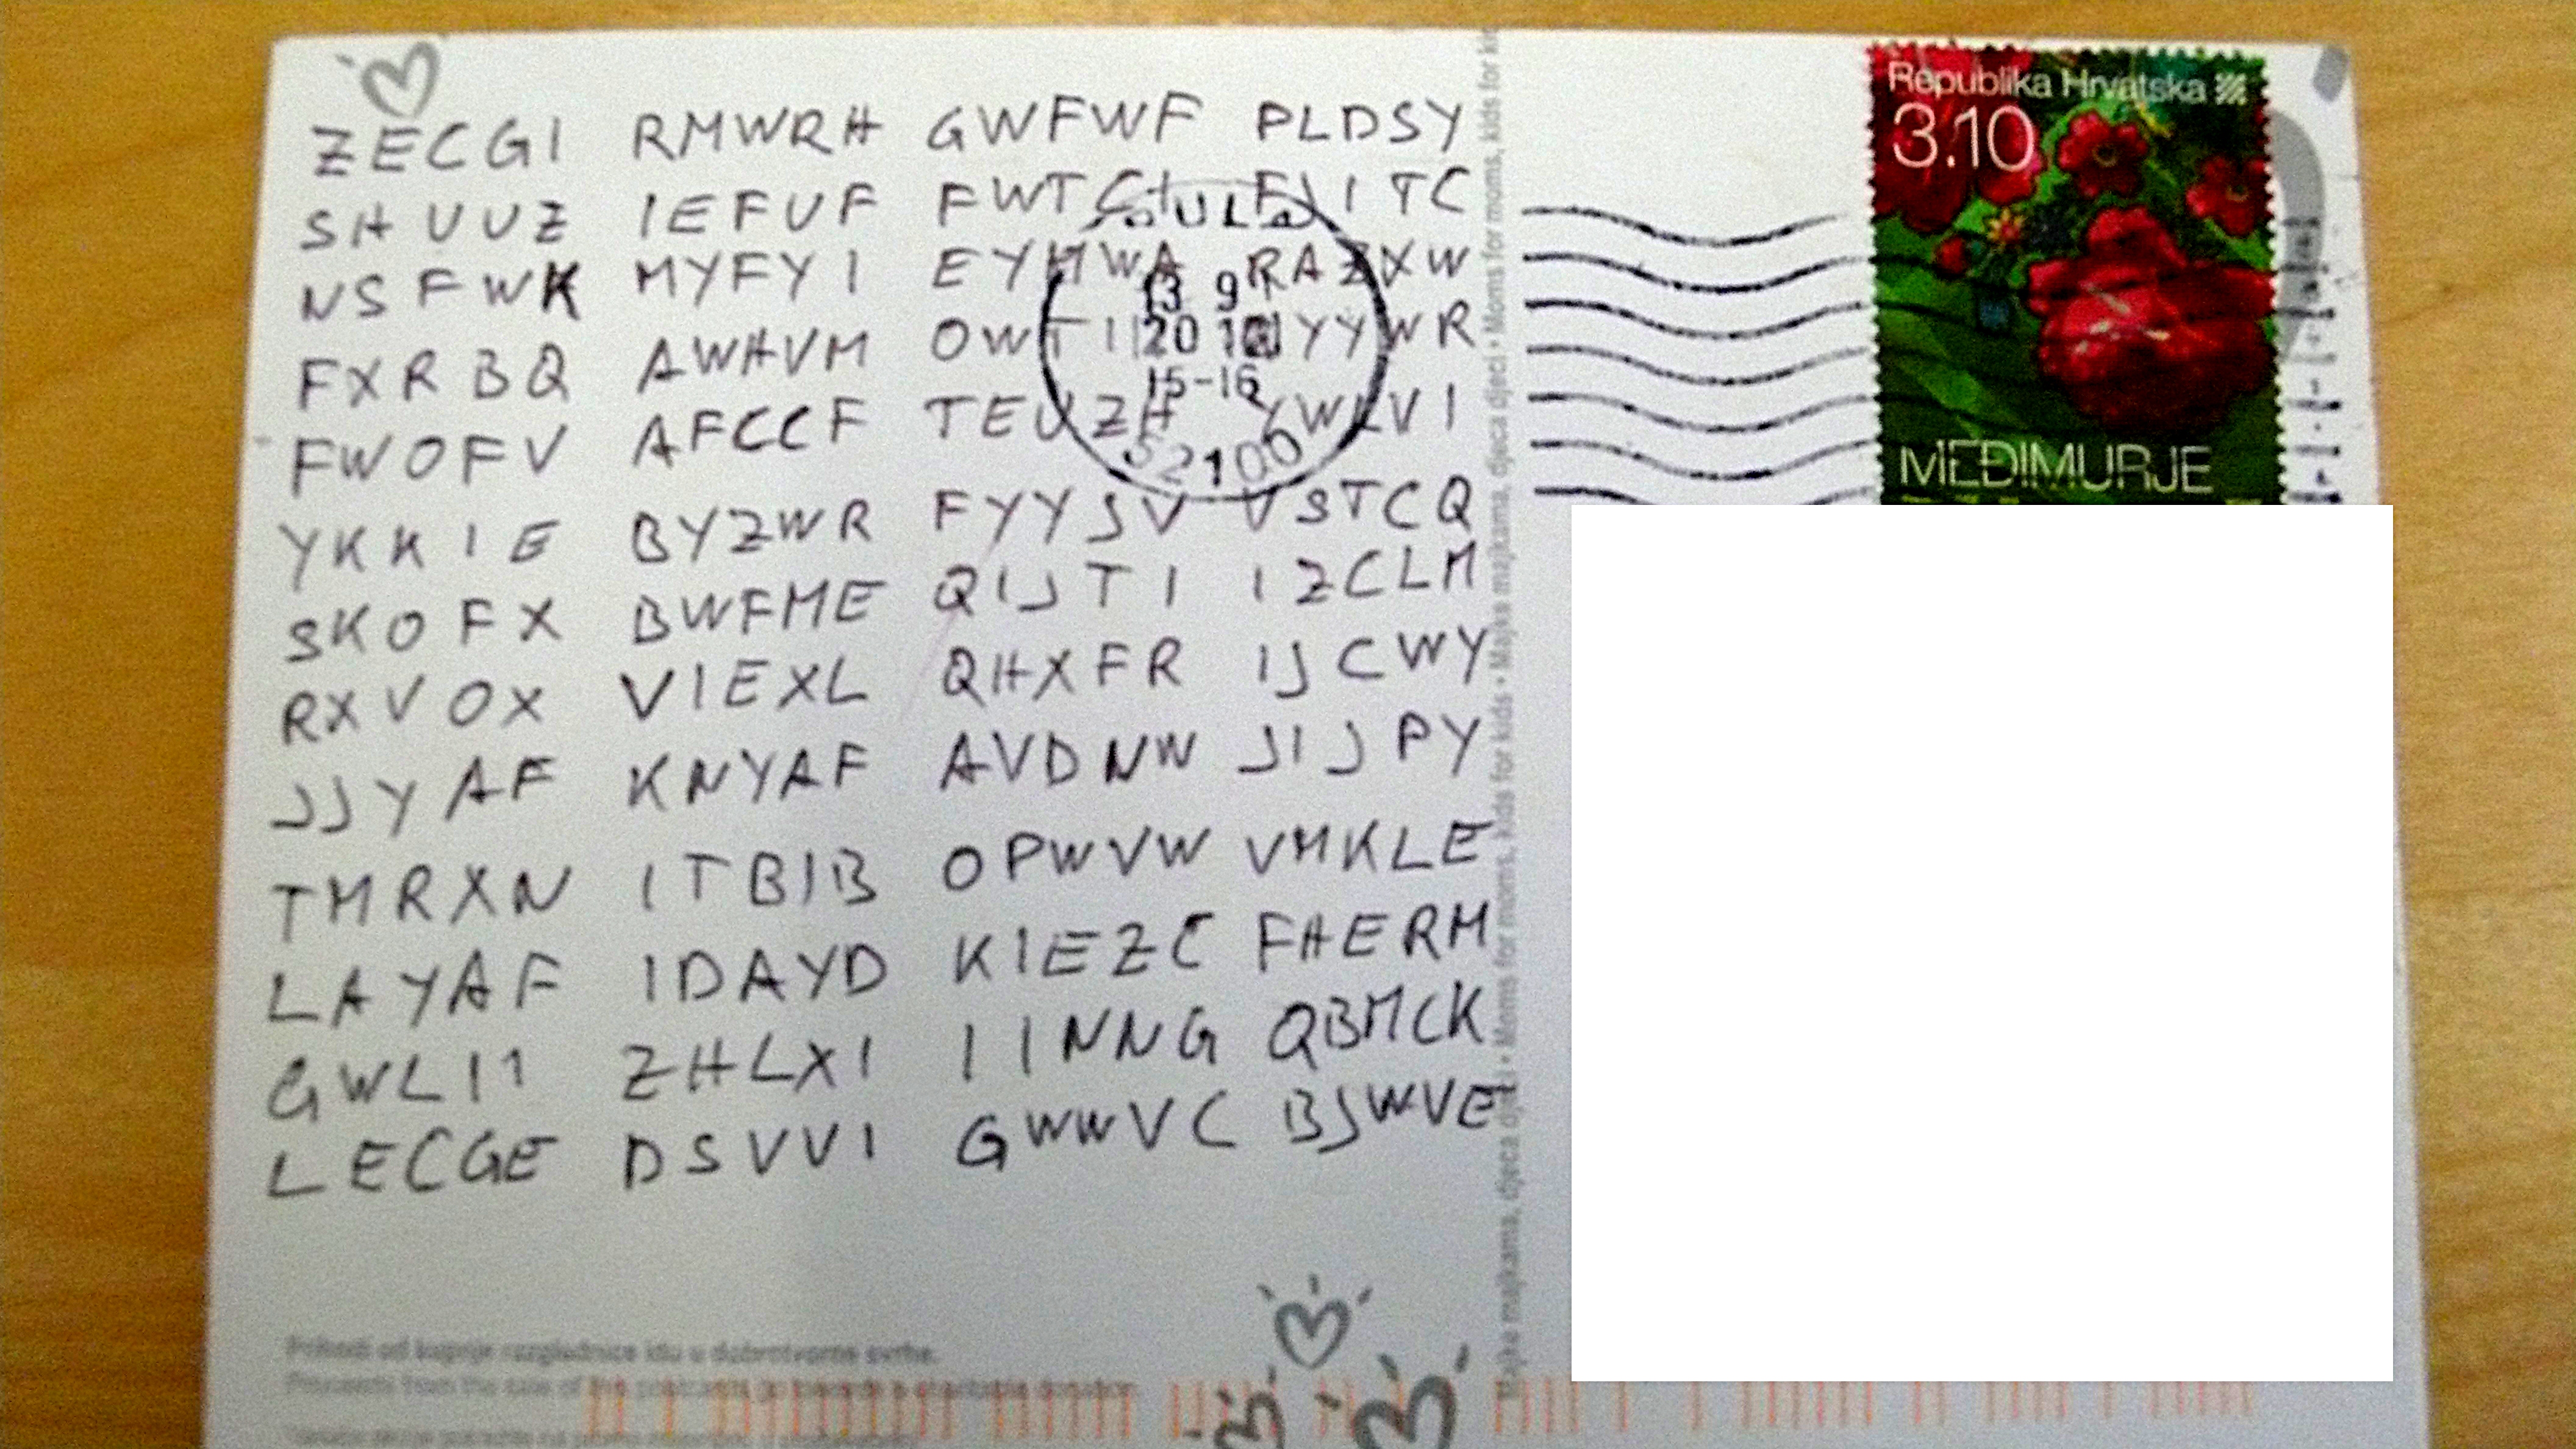 ZECGI RMWRH GWFWF PLDSY
SHUUZ IEFUF FWTCH FJITC
NSFWK MYFYI EYHWA RAZXW
FXRBQ AWHVM YYWR
FWOFV AFCCF TEUZH YWLVI
YKKIE BYZWR FYYSV VSTCQ
SKOFX BWFME QIJTI IZCLM
RXVOX VIEXL QHXFR IJCWY
JJYAF KNYAF AVDNW JIJPY
TMRXN ITBIB OPWVW VMKLE
LAYAF IDAYD KIEZC FHERM
GWLII ZHLXI IINNG QBMCK
LECGE DSVVI GWWVC BJWVE
PULA
13 9
20 10
15-16
52100
Republika Hrvatska
3.10
MEĐIMURJE
Majke majkama, djeca djeci • Moms for moms, kids for kids • Majke majkama, djeca djeci • Moms for moms, kids for kids
Prihodi od kupnje razglednice idu u dobrotvorne svrhe.
Proceeds from the sale of this postcard go towards a charitable donation.